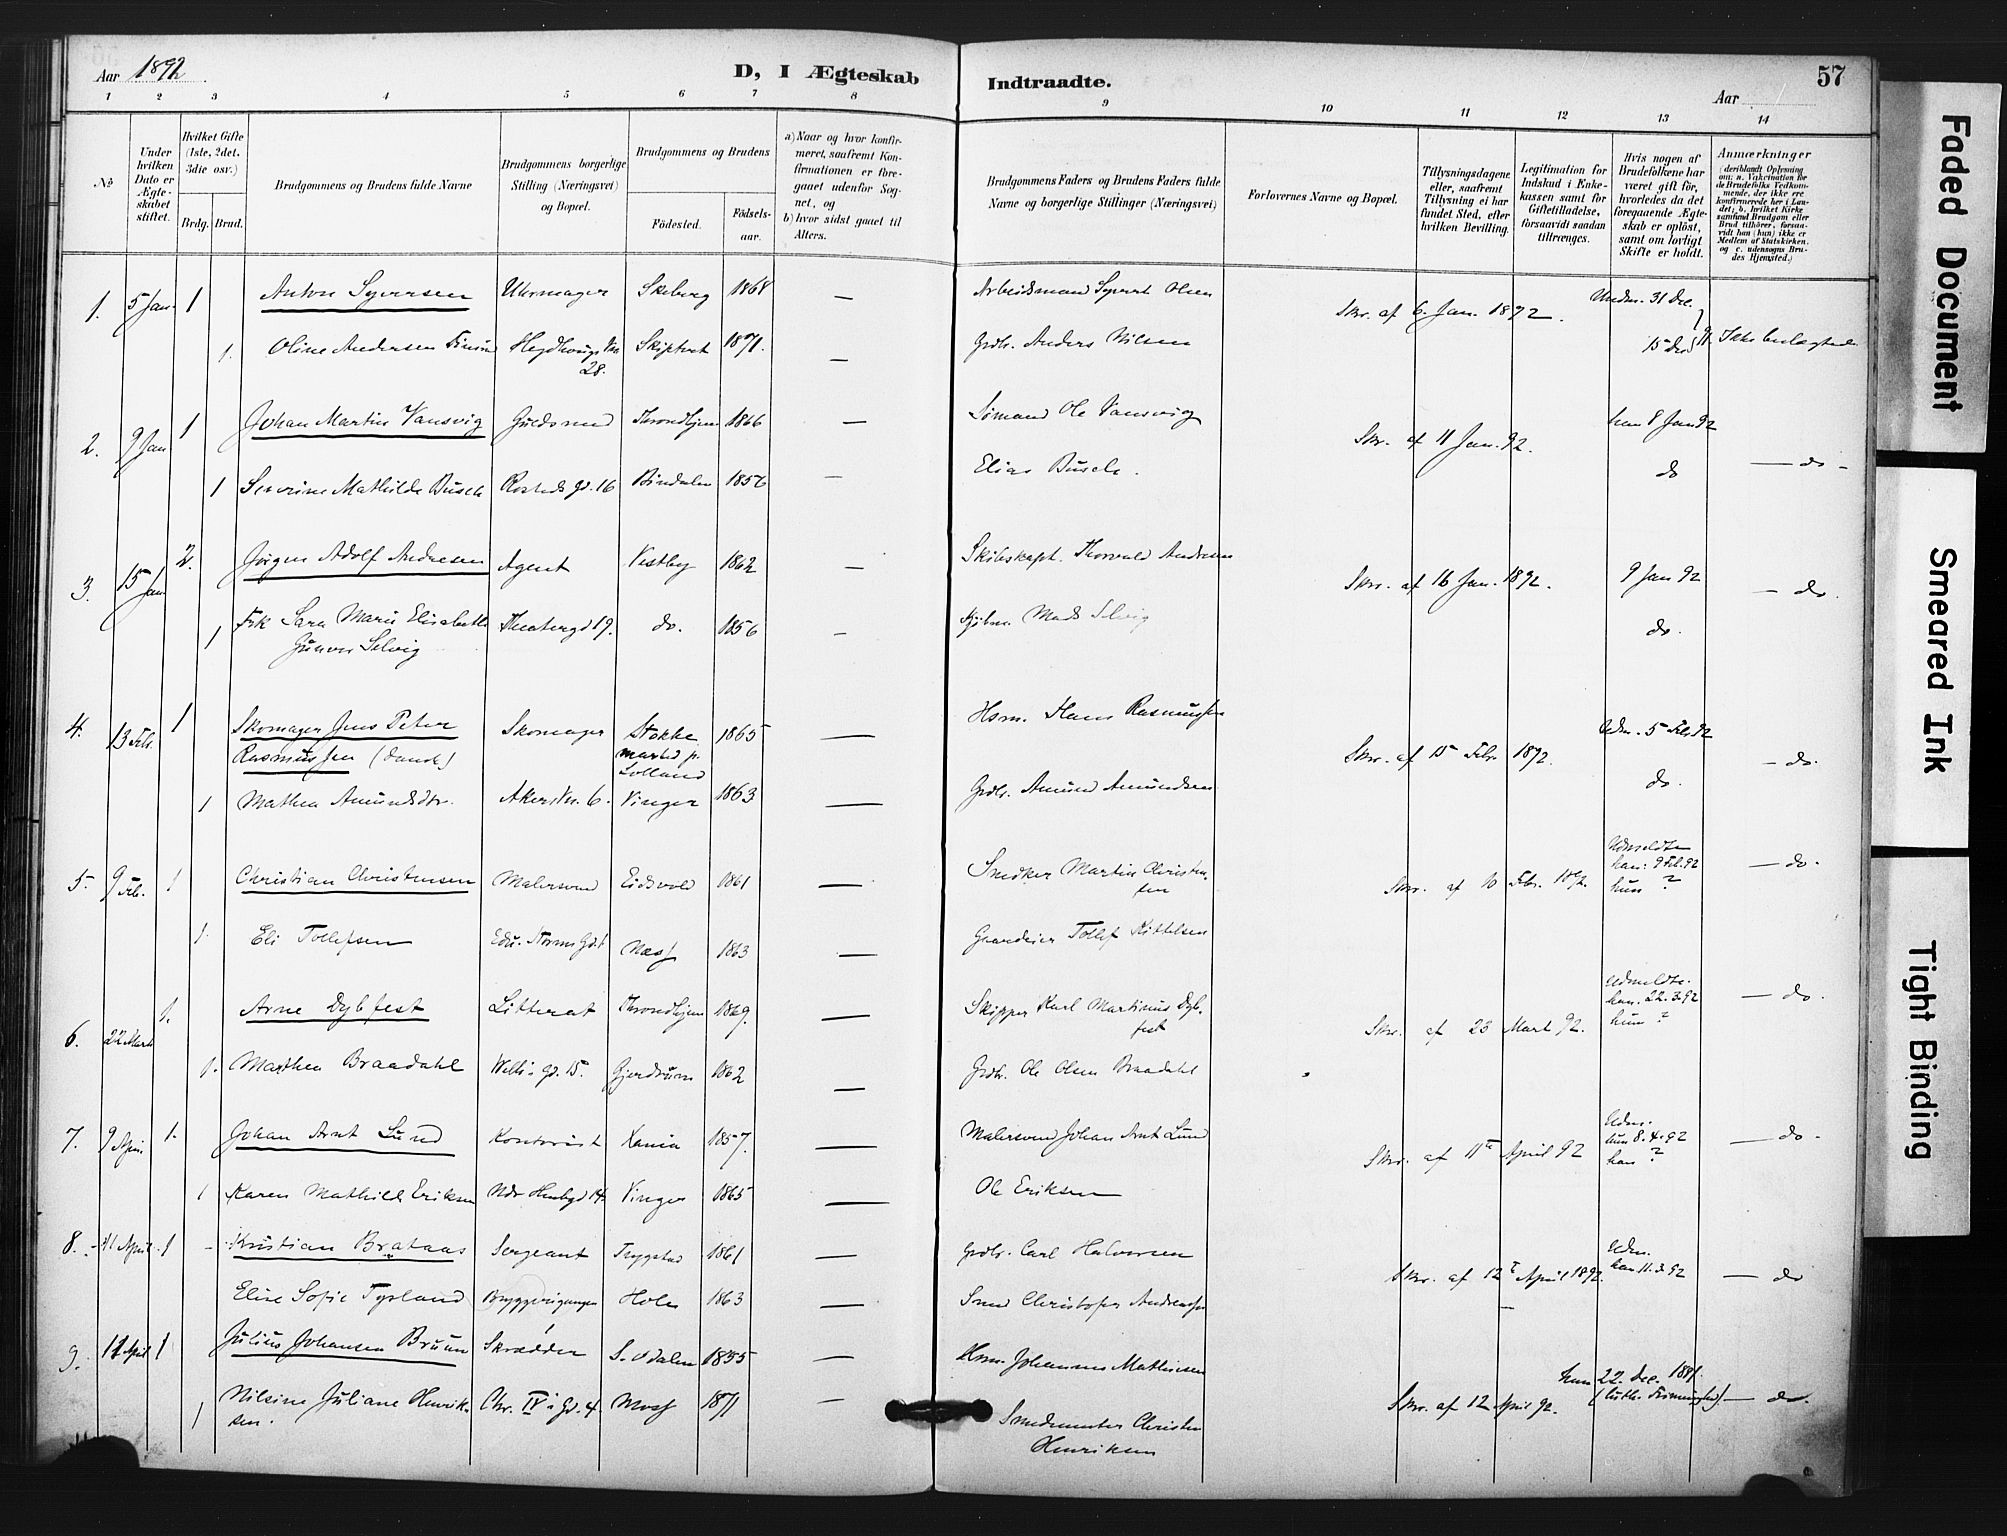 Aar 1892
D, I Ægteskab
Indtraadte.
57
Aar
1 2 3 4 5 6 7 8 9 10 11 12 13 14
№
Under hvilken Dato er Ægteskabet stiftet.
Hvilket Gifte (1ste, 2det, 3die osv.)
Brdg. Brud.
Brudgommens og Brudens fulde Navne
Brudgommens borgerlige Stilling (Næringsvei) og Bopæl.
Brudgommens og Brudens
Fødested.
Fødselsaar.
a) Naar og hvor konfirmeret, saafremt Konfirmationen er foregaaet udenfor Sognet, og
b) hvor sidst gaaet til Alters.
Brudgommens Faders og Brudens Faders fulde Navne og borgerlige Stillinger (Næringsvei)
Forlovernes Navne og Bopæl.
Tillysningsdagene eller, saafremt Tillysning ei har fundet Sted, efter hvilken Bevilling.
Legitimation for Indskud i Enkekassen samt for Giftetilladelse, forsaavidt saadan tiltrænges.
Hvis nogen af Brudefolkene har været gift før, hvorledes da det foregaaende Ægteskab er opløst, samt om lovligt Skifte er holdt.
Anmærkninger (deriblandt Oplysning om: a. Vakcination for de Brudefolks Vedkommende, der ikke ere konfirmerede her i Landet; b. hvilket Kirkesamfund Brudgom eller Brud tilhører, forsaavidt han (hun) ikke er Medlem af Statskirken, og c. udensogns Brudes Hjemsted.)
1. 5 Jan. 1 Anton Syversen Uhrmager Skiberg 1868 — Arbeidsmand Syvert Olsen Skr. af 6. Jan. 1892. Udm. 31 Dec.
1. Oline Andersen Heydhougs 28. Skiptvet 1871. — Grdbr. Anders Nilsen 15 Dec 91. Ikke beslægtede
2. 9 Jan 1 Johan Martin Vansvig Guldsmed Throndhjem 1866 — Sømand Ole Vansvig Skr. af 11 Jan. 92. han 8 Jan 92
1 Severine Mathilde Busch Rosteds gd. 16 Bindalen 1856 — Elias Busch. do — do —
3. 15 Jan 2. Jørgen Adolf Andresen Agent Vestby 1862 — Skibskapt. Thorvald Andresen Skr. af 16 Jan. 1892. 9 Jan 92
1 Frk Sara Marie Elisabeth Gunvor Selvig Theatergd 19. do. 1856 — Kjøbm. Mads Selvig do. — do.
4. 13 Feb. 1 Skomager Jens Peter Rasmussen (dansk) Skomager Stokkemarked p. Lolland 1865 — Hsm. Hans Rasmussen Skr. af 15 Febr. 1892. Udm. 5 Feb. 92
1 Mathea Amundsdtr. Akersvn. 6. Vinger 1863 — Grdbr. Amund Amundsen do. — do.
5. 9 Feb. 1 Christian Christensen Malersvend Eidsvold 1861 — Snedker Martin Christensen Skr. af 10 Febr. 1892. Udmeldte han: 9 Feb. 92 hun ? — do.
1. Eli Tollefsen Edv. Storms Gd. 1 Næss 1863 — Gaardeier Tollef Kittelsen
6. 22 Mart 1. Arne Dybfest Litterat Throndhjem 1869. — Skipper Karl Martinus Dybfest Skr. af 23 Mart 92. Udmeldte. han. 22.3.92 hun ? — do.
1. Marthea Braadahl Welh.s gd. 15. Gjerdrum 1862 — Grdbr. Ole Olsen Braadahl
7. 9 April 1. Johan Arnt Lund Kontorist Xania 1857. — Malersvend Johan Arnt Lund Skr. af 11te April 92 Udm. hun 8.4.92 han ? — do.
1 Karen Mathilde Eriksen Vinger 1865 — Ole Eriksen
8. 11 April 1 Kristian Brataas Sergeant Trygstad 1861 — Grdbr. Carl Halvorsen Skr. af 12te April 1892. Udm. han 11.3.92 — do
Elise Sofie Tysland Hole 1863 — Smed Christofer Andreassen
9. 11 April 1 Julius Johansen Bruun Skrædder S. Odalen 1855 — Hsm. Johannes Mathiesen
1 Nilsine Juliane Henriksen. Chr. IVs Gd. 4. Moss 1871 — Smedmester Christen Henriksen Skr. af 12 April 92. hun 22. Dec. 1891. (luth. Frimenighed). — do.
Faded Document
Smeared Ink
Tight Binding